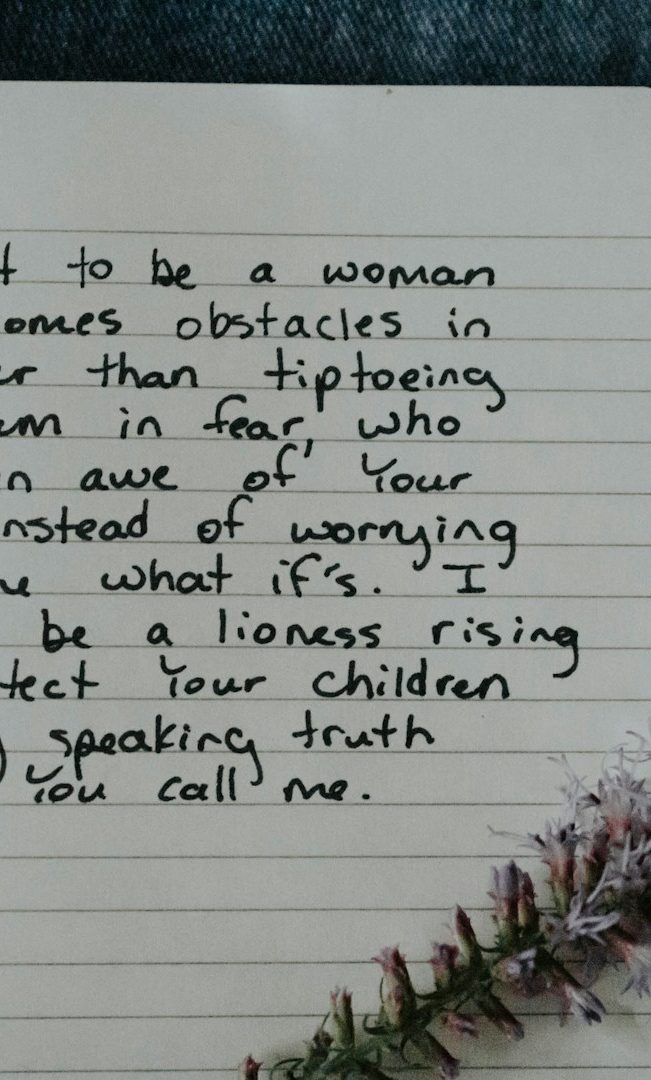 t to be a woman
omes obstacles in
er than tiptoeing
em in fear, who
n awe of Your
nstead of worrying
e what if's. I
be a lioness rising
tect Your children
speaking truth
You call me.